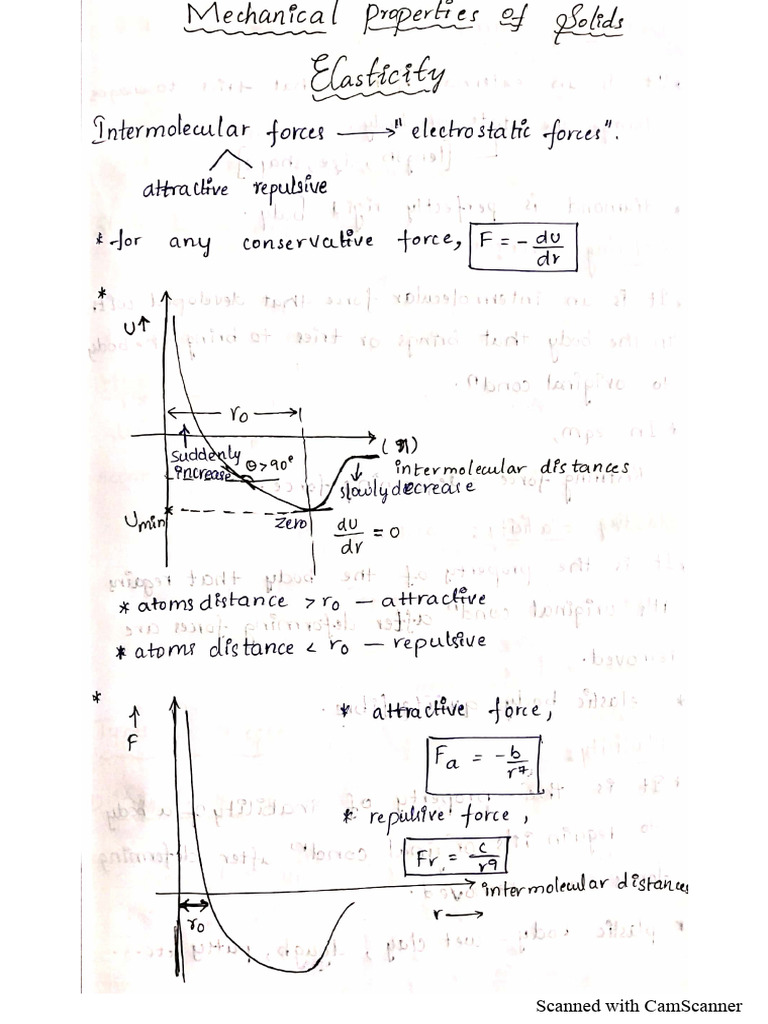 Mechanical Properties of Solids
Elasticity
Intermolecular forces ⟶ "electrostatic forces".
attractive repulsive
* for any conservative force, F = - dU/dr
*
U↑
← r₀ →
(r)
suddenly
increase
θ>90°
intermolecular distances
slowly decrease
Umin
zero
dU/dr = 0
* atoms distance > r₀ — attractive
* atoms distance < r₀ — repulsive
*
↑
F
* attractive force,
Fa = -b/r⁷
* repulsive force,
Fr = c/r⁹
intermolecular distances
r₀
r⟶
Scanned with CamScanner